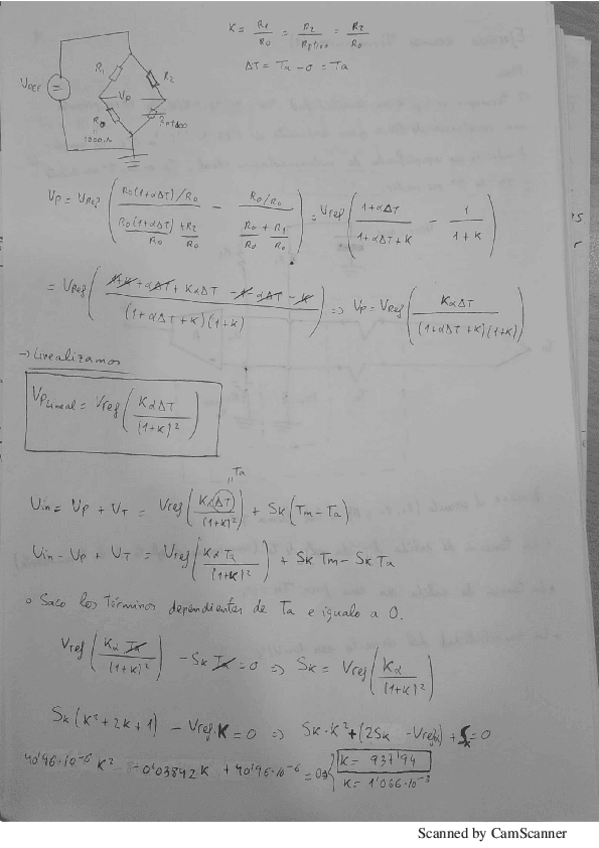 K = R1/R0 = R2/RPt100 = R2/R0
ΔT = Tu - 0 = Ta
VREF
R1
R2
Vp
R0
1000Ω
Vp = VREF ( (R0(1+αΔT)/R0) / (R0(1+αΔT)/R0 + R2/R0) - (R0/R0) / (R0/R0 + R1/R0) ) = Vref ( (1+αΔT)/(1+αΔT+K) - 1/(1+K) )
= VREF ( (1+K+αΔT+KαΔT-1-αΔT-K) / ((1+αΔT+K)(1+K)) ) => Vp = VREF ( KαΔT / ((1+αΔT+K)(1+K)) )
→ Linealizamos
Vp Lineal = Vref ( KαΔT / (1+K)² )
Ta
Uin = Vp + VT = Vref ( KαΔT / (1+K)² ) + Sk (Tm - Ta)
Uin = Vp + VT = Vref ( KαTa / (1+K)² ) + Sk Tm - Sk Ta
o Saco los Términos dependientes de Ta e igualo a 0.
Vref ( Kα Ta / (1+K)² ) - Sk Ta = 0 => Sk = Vref ( Kα / (1+K)² )
Sk (K² + 2K + 1) - Vref·K = 0 => Sk·K² + (2Sk - Vrefα) + Sk = 0
40'96·10⁻⁶ K² - 0'03842K + 40'96·10⁻⁶ = 0 => { K = 937'94
K = 1'066·10⁻³
Scanned by CamScanner